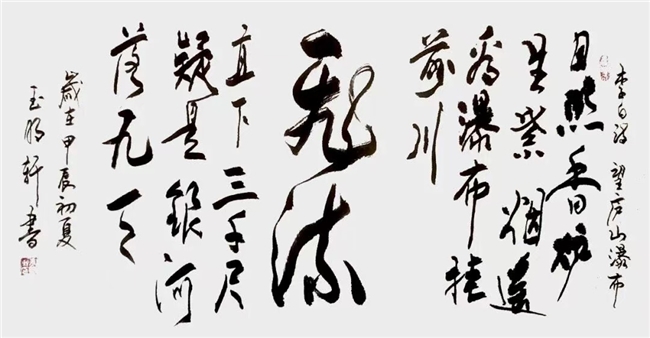 李白诗 望庐山瀑布
日照香炉
生紫烟遥
看瀑布挂
前川
飛流
直下三千尺
疑是銀河
落九天
歲在甲辰初夏
玉 轩書